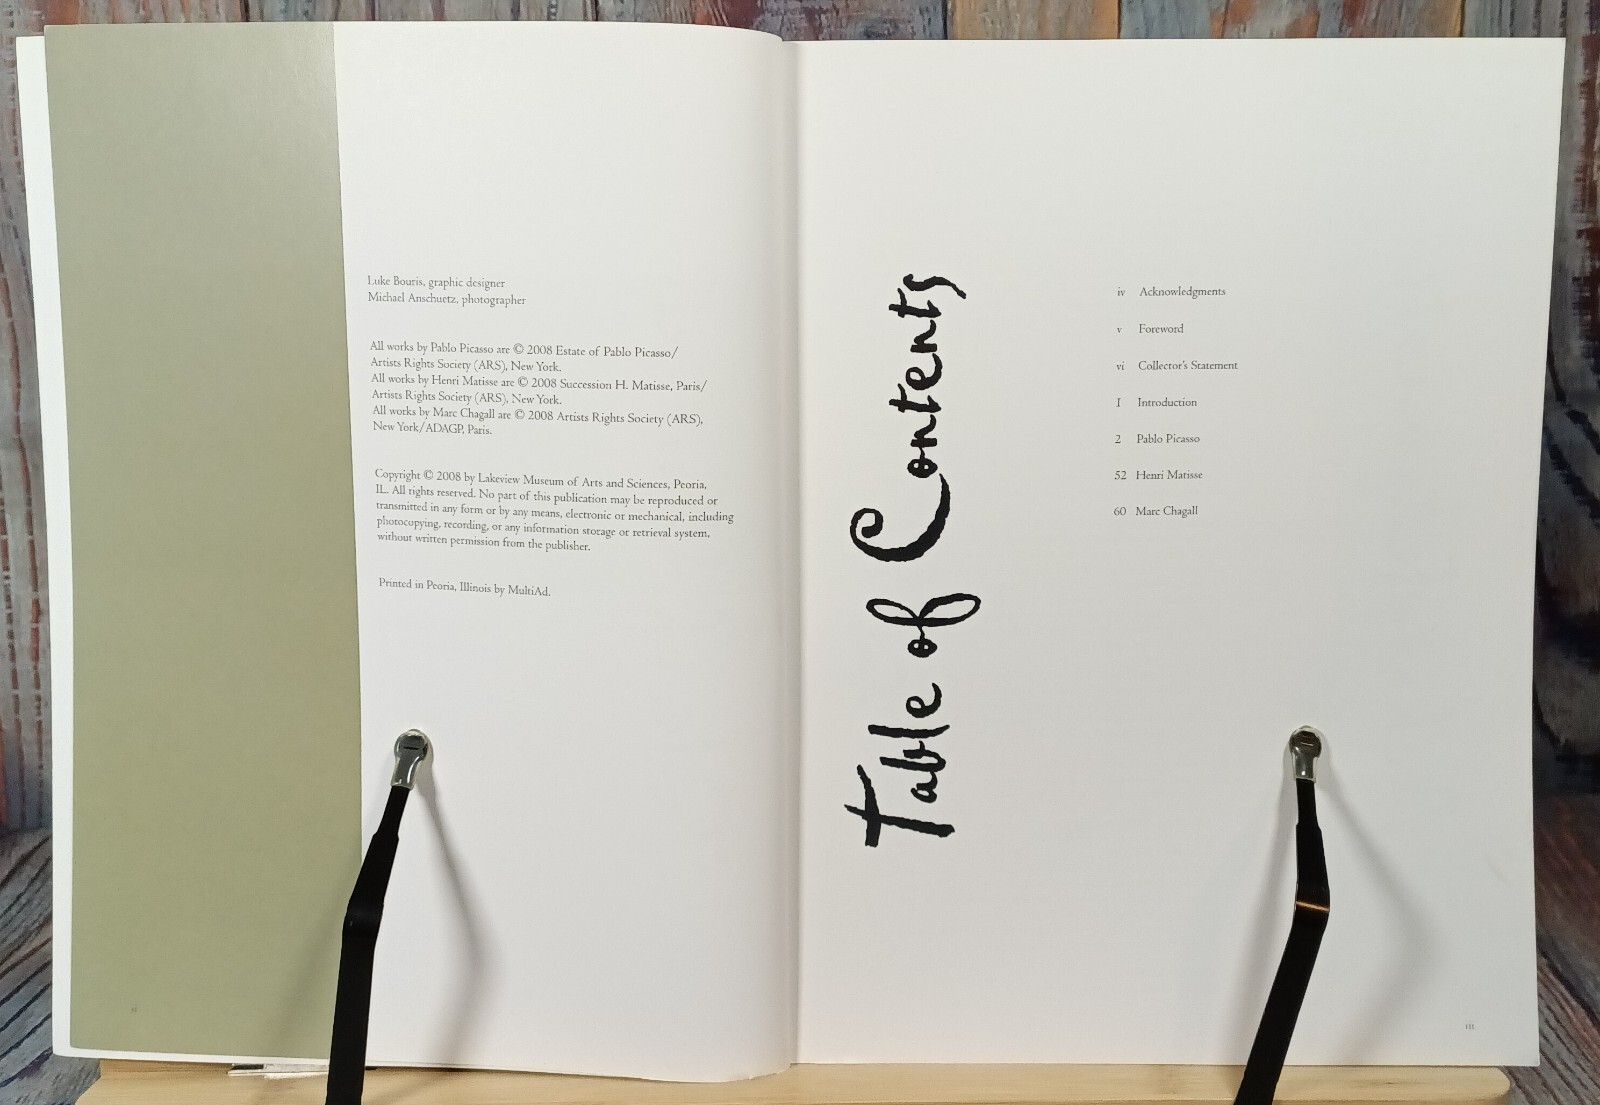 Luke Bouris, graphic designer
Michael Anschuetz, photographer
All works by Pablo Picasso are © 2008 Estate of Pablo Picasso/
Artists Rights Society (ARS), New York.
All works by Henri Matisse are © 2008 Succession H. Matisse, Paris/
Artists Rights Society (ARS), New York.
All works by Marc Chagall are © 2008 Artists Rights Society (ARS),
New York/ADAGP, Paris.
Copyright © 2008 by Lakeview Museum of Arts and Sciences, Peoria,
IL. All rights reserved. No part of this publication may be reproduced or
transmitted in any form or by any means, electronic or mechanical, including
photocopying, recording, or any information storage or retrieval system,
without written permission from the publisher.
Printed in Peoria, Illinois by MultiAd.
Table of Contents
iv Acknowledgments
v Foreword
vi Collector's Statement
1 Introduction
2 Pablo Picasso
52 Henri Matisse
60 Marc Chagall